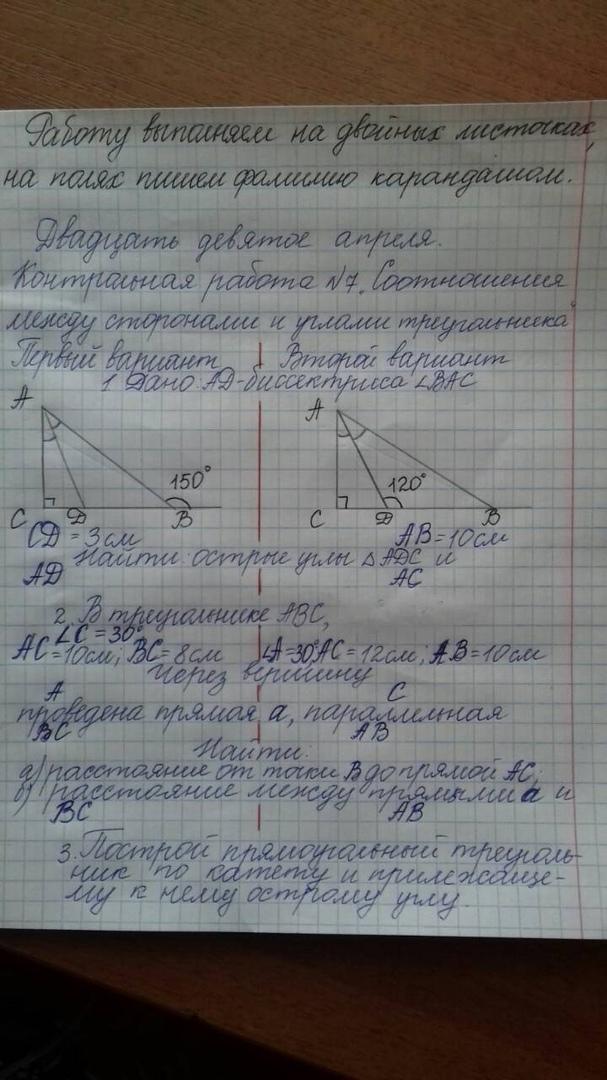 Работу выполняем на двойных листочках,
на полях пишем фамилию карандашом.
Двадцать девятое апреля.
Контрольная работа №7. Соотношения
между сторонами и углами треугольника
Первый вариант Второй вариант
1. Дано: AD-биссектриса ∠BAC
A A
150° 120°
C D B C D B
CD = 3см AB = 10см
Найти: острые углы △ADC и
AD AC
2. В треугольнике ABC,
∠C = 30°
AC = 10см; BC = 8см ∠A = 30° AC = 12см; AB = 10см
Через вершину
A C
проведена прямая a, параллельная
BC AB
Найти:
а) расстояние от точки B до прямой AC;
в) расстояние между прямыми a и
BC AB
3. Построй прямоугольный треуголь-
ник по катету и прилежаще-
му к нему острому углу.